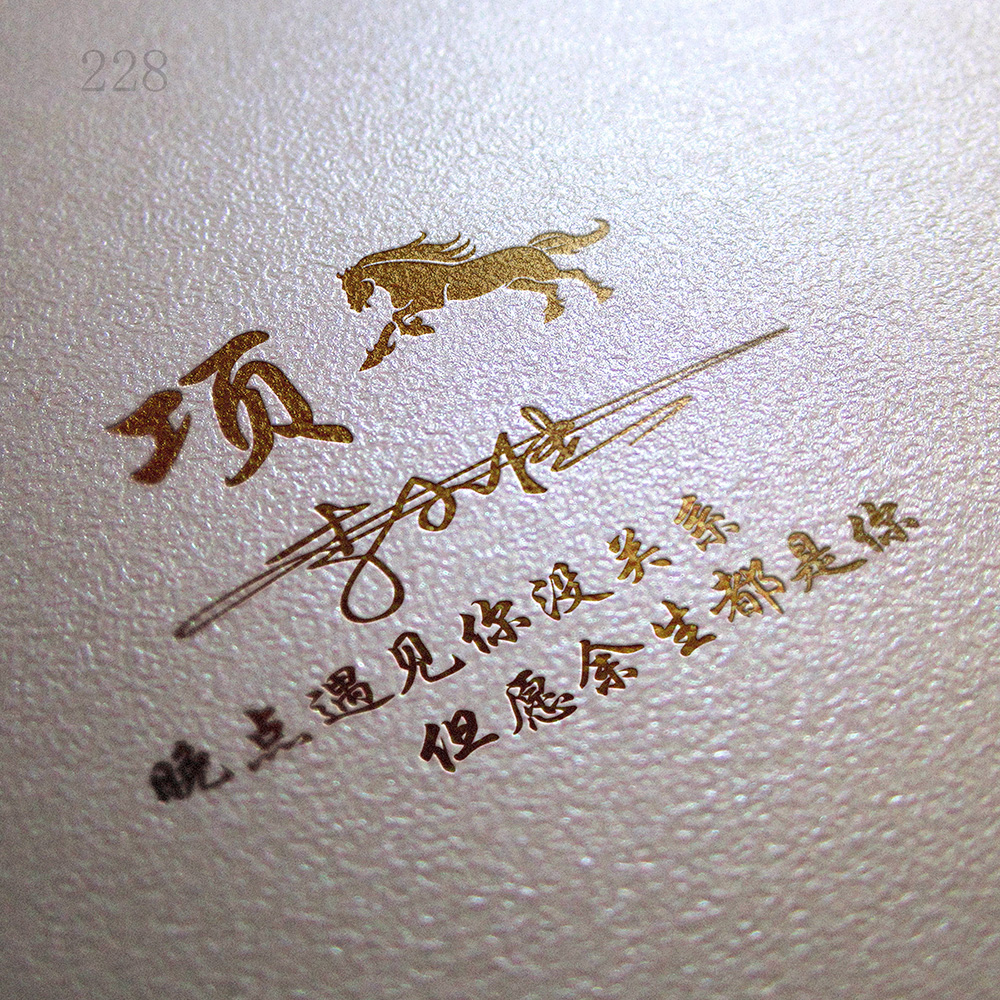 228
项
晚点遇见你没关系
但愿余生都是你